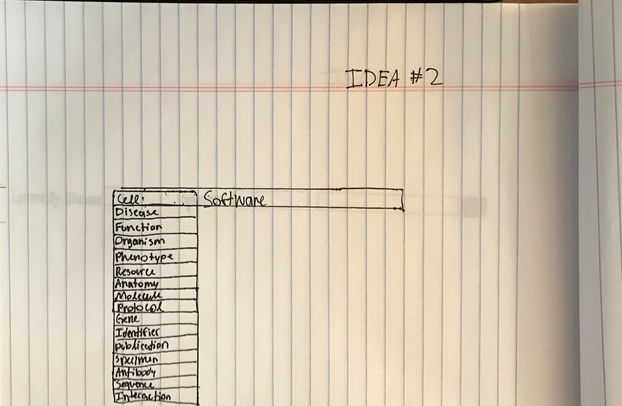 IDEA #2
Cell: Software
Disease
Function
Organism
Phenotype
Resource
Anatomy
Molecule
Protocol
Gene
Identifier
publication
specimen
Antibody
Sequence
Interaction